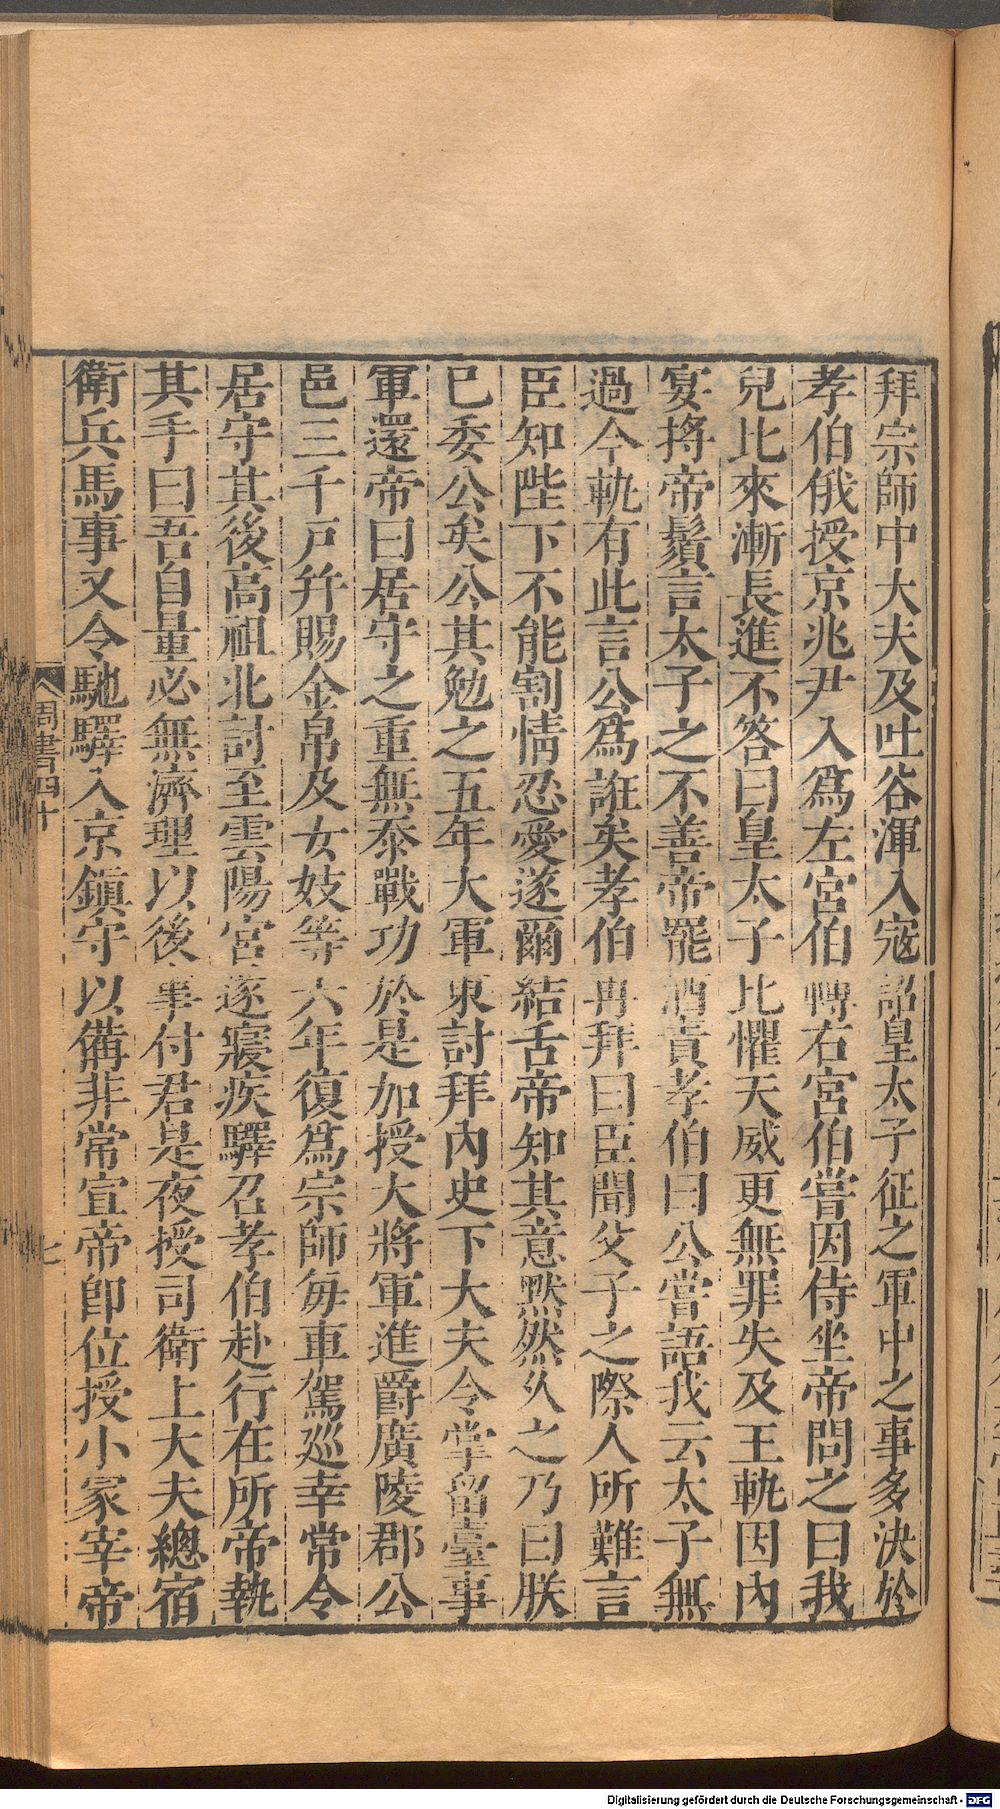 拜宗師中大夫及吐谷渾入寇詔皇太子征之軍中之事多決於
孝伯俄授京兆尹入爲左宮伯轉右宮伯嘗因侍坐帝問之曰我
兒比來漸長進不答曰皇太子比懼天威更無罪失及王軌因內
宴捋帝鬚言太子之不善帝罷酒責孝伯曰公嘗語我云太子無
過今軌有此言公爲誑矣孝伯再拜曰臣聞父子之際人所難言
臣知陛下不能割情忍愛遂爾結舌帝知其意默然久之乃曰朕
已委公矣公其勉之五年大軍東討拜內史下大夫令掌留臺事
軍還帝曰居守之重無忝戰功於是加授大將軍進爵廣陵郡公
邑三千戸幷賜金帛及女妓等六年復爲宗師每車駕巡幸常令
居守其後高祖北討至雲陽宮遂寢疾驛召孝伯赴行在所帝執
其手曰吾自量必無濟理以後事付君是夜授司衛上大夫總宿
衛兵馬事又令馳驛入京鎭守以備非常宣帝卽位授小冢宰帝
周書四十
七
Digitalisierung gefördert durch die Deutsche Forschungsgemeinschaft - DFG